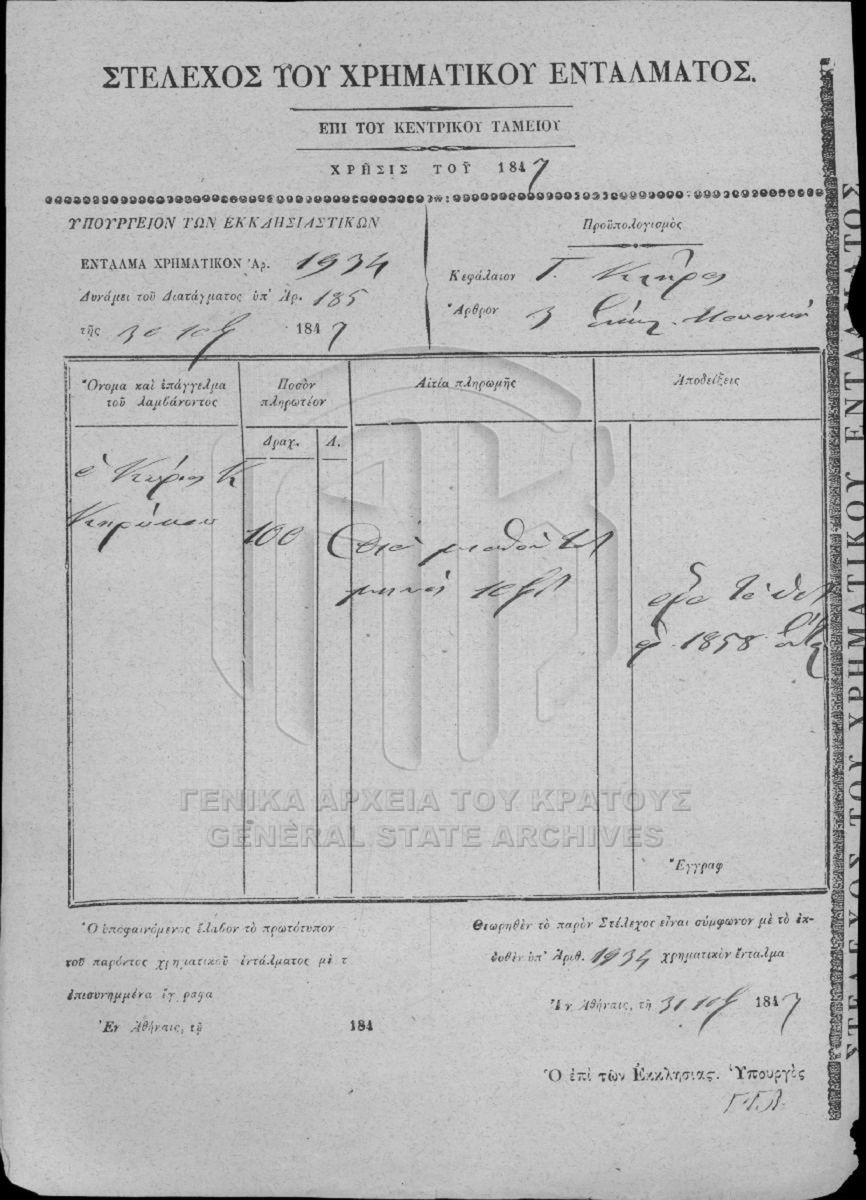 ΣΤΕΛΕΧΟΣ ΤΟΥ ΧΡΗΜΑΤΙΚΟΥ ΕΝΤΑΛΜΑΤΟΣ.
ΕΠΙ ΤΟΥ ΚΕΝΤΡΙΚΟΥ ΤΑΜΕΙΟΥ
ΧΡΗΣΙΣ ΤΟΥ 1847
ΥΠΟΥΡΓΕΙΟΝ ΤΩΝ ΕΚΚΛΗΣΙΑΣΤΙΚΩΝ
ΕΝΤΑΛΜΑ ΧΡΗΜΑΤΙΚΟΝ Ἀρ. 1934
Δυνάμει τοῦ Διατάγματος ὑπ' Ἀρ. 185
τῆς 30 1847
Προϋπολογισμὸς
Κεφάλαιον Γ.
Ἄρθρον 3
Ὄνομα καὶ ἐπάγγελμα
τοῦ λαμβάνοντος
Ποσὸν
πληρωτέον
Αἰτία πληρωμῆς
Ἀποδείξεις
Δραχ. Λ.
ὁ Κύριος Κ
100
διὰ μισθὸν τοῦ
μηνὸς
1858
ΓΕΝΙΚΑ ΑΡΧΕΙΑ ΤΟΥ ΚΡΑΤΟΥΣ
GENERAL STATE ARCHIVES
Ἔγγραφ
Ὁ ὑποφαινόμενος ἔλαβον τὸ πρωτότυπον
τοῦ παρόντος χρηματικοῦ ἐντάλματος μὲ τ
ἐπισυνημμένα ἔγγραφα
Ἐν Ἀθήναις, τῇ 184
Θεωρηθὲν τὸ παρὸν Στέλεχος εἶναι σύμφωνον μὲ τὸ ἐκ-
δοθὲν ὑπ' Ἀριθ. 1934 χρηματικὸν ἔνταλμα
Ἐν Ἀθήναις, τῇ 31 1847
Ὁ ἐπὶ τῶν Ἐκκλησιας. Ὑπουργὸς
ΣΤΕΛΕΧΟΣ ΤΟΥ ΧΡΗΜΑΤΙΚΟΥ ΕΝΤΑΛΜΑΤΟΣ